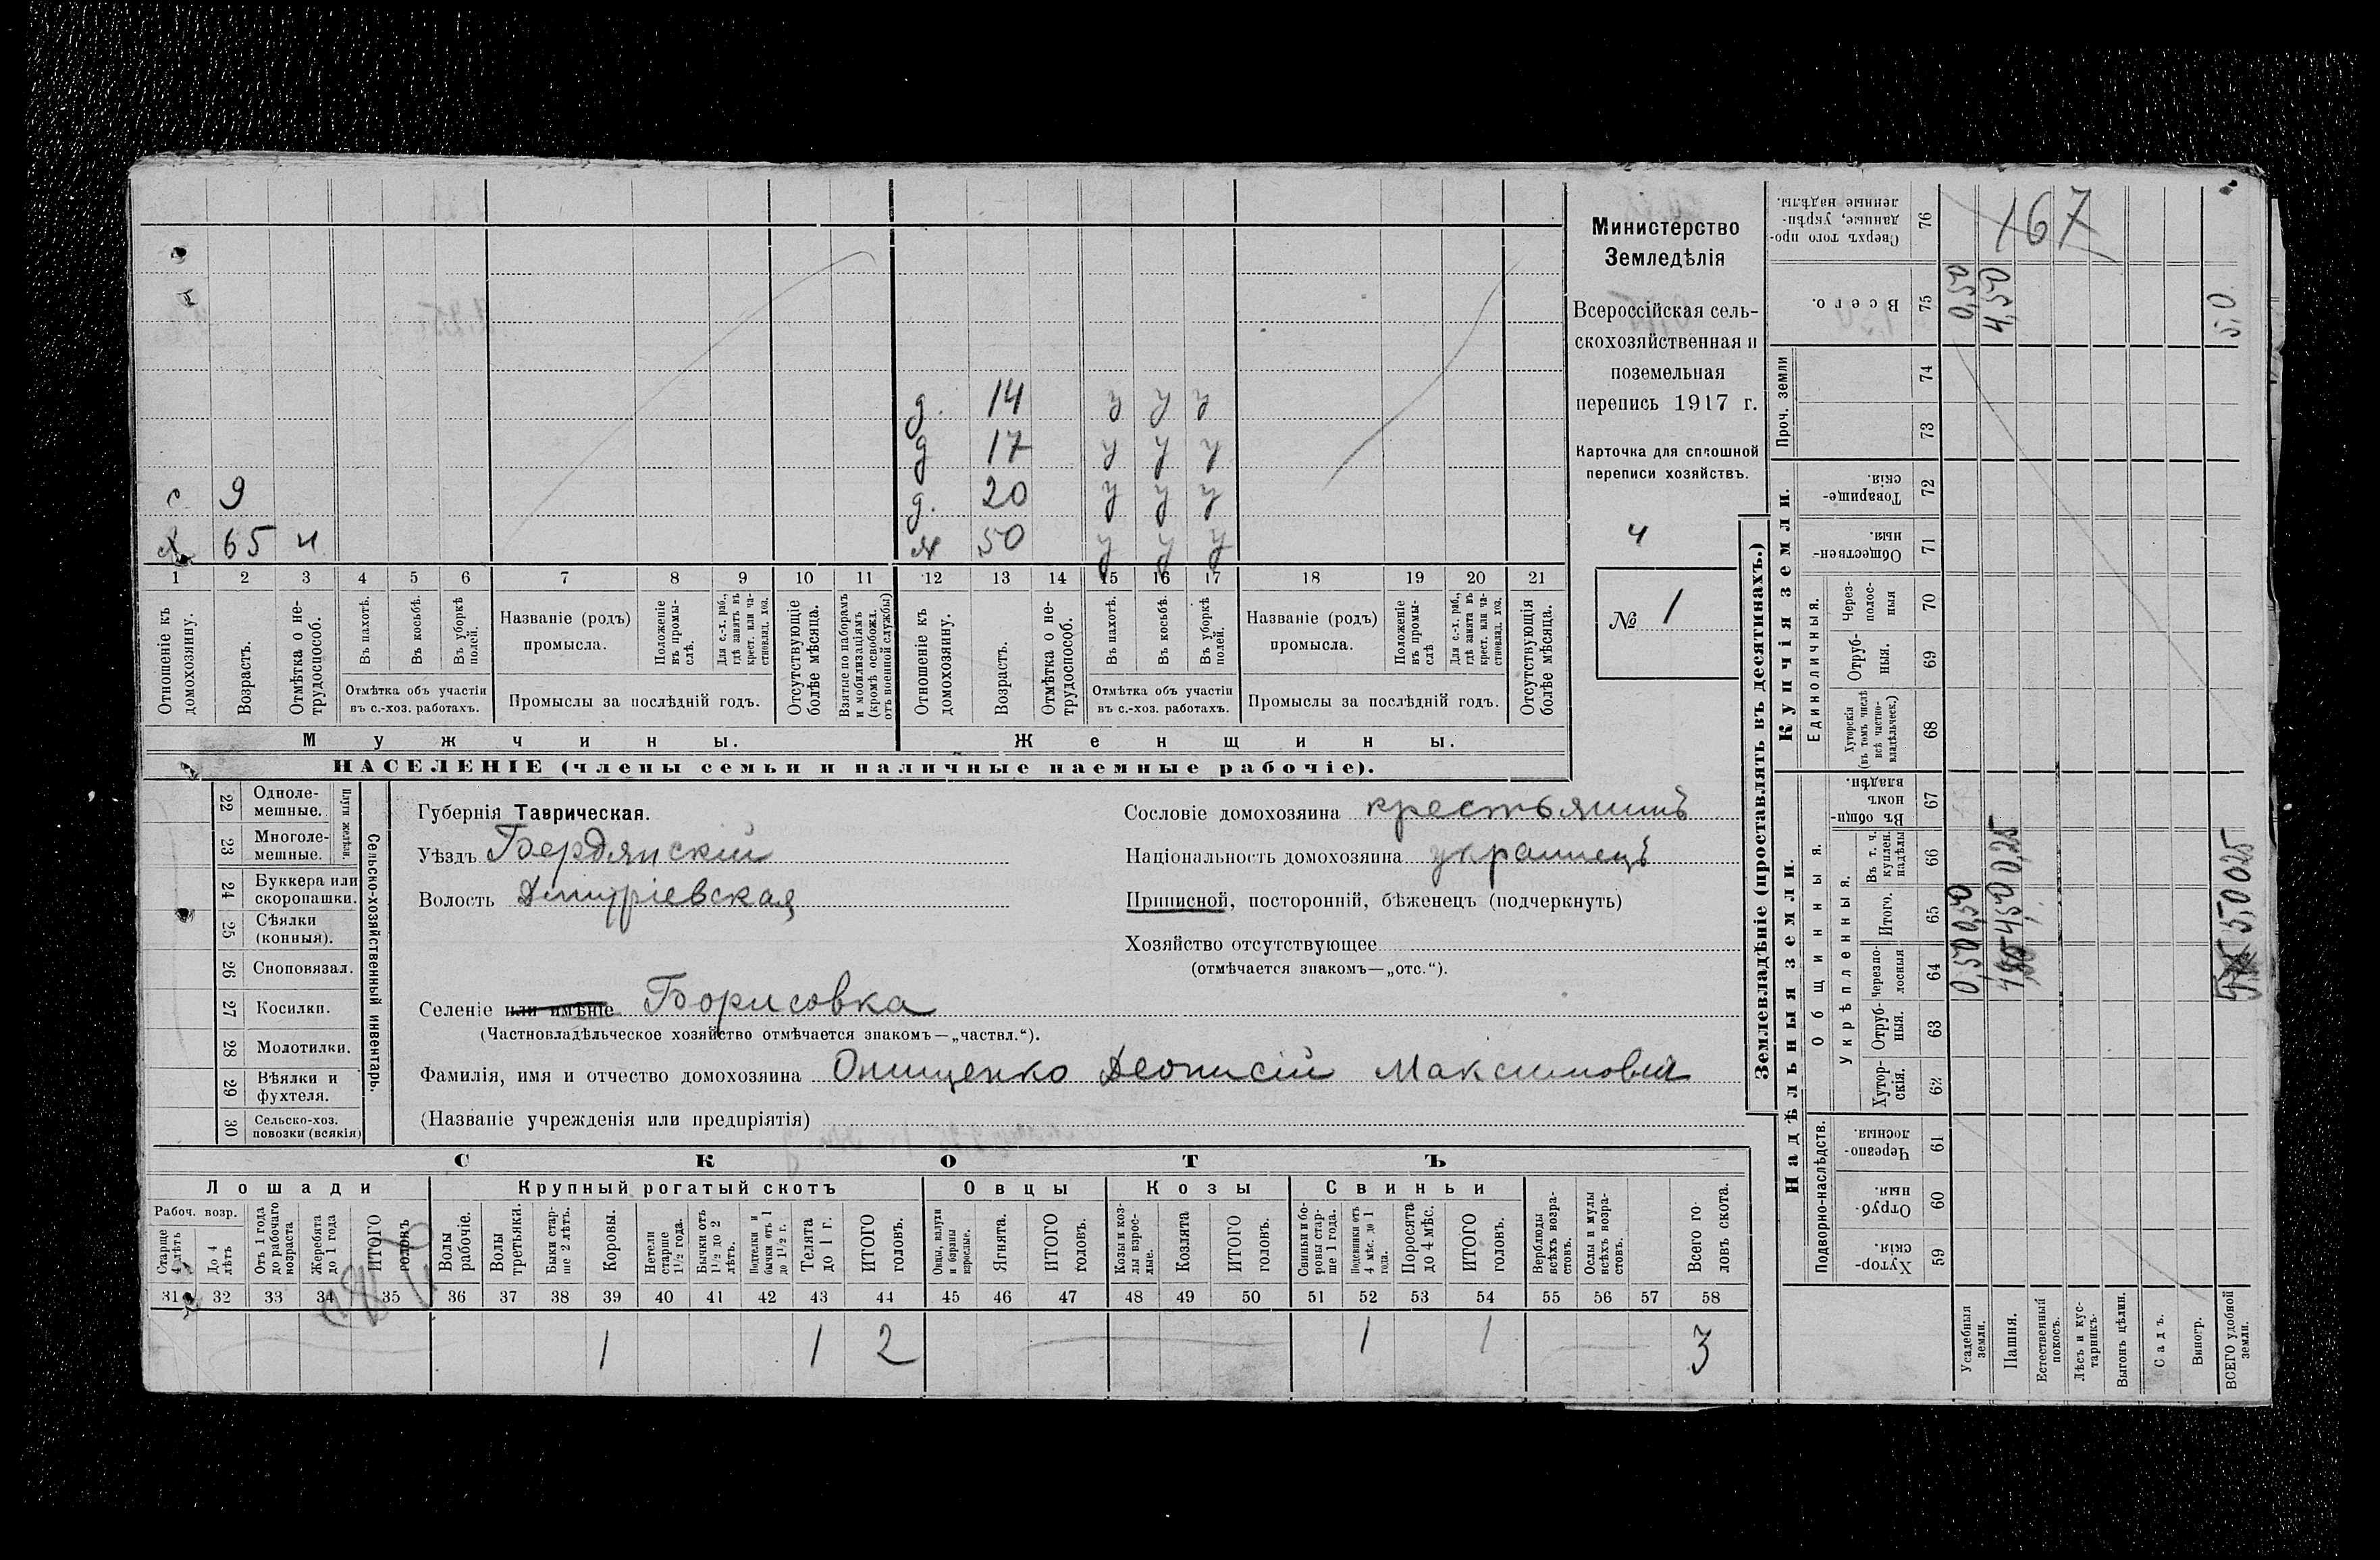 Министерство
Земледѣлія
Всероссійская сель-
скохозяйственная и
поземельная
перепись 1917 г.
Карточка для сплошной
переписи хозяйствъ.
ч
№ 1
167
д. 14 у у у
д 17 у у у
с 9
д. 20 у у у
х 65 н
ж 50 у у у
1 2 3 4 5 6 7 8 9 10 11 12 13 14 15 16 17 18 19 20 21
Отношеніе къ домохозяину.
Возрастъ.
Отмѣтка о не-трудоспособ.
Въ пахотѣ.
Въ косьбѣ.
Въ уборкѣ полей.
Отмѣтка объ участіи
въ с.-хоз. работахъ.
Названіе (родъ)
промысла.
Положеніе въ промы-слѣ.
Для с.-х. раб., гдѣ занятъ въ крест. или ча-стновлад. хоз.
Промыслы за послѣдній годъ.
Отсутствующіе болѣе мѣсяца.
Взятые по наборамъ и мобилизаціямъ (кромѣ освобожд. отъ военной службы)
Отношеніе къ домохозяину.
Возрастъ.
Отмѣтка о не-трудоспособ.
Въ пахотѣ.
Въ косьбѣ.
Въ уборкѣ полей.
Отмѣтка объ участіи
въ с.-хоз. работахъ.
Названіе (родъ)
промысла.
Положеніе въ промы-слѣ
Для с.-х. раб., гдѣ занята въ крест. или ча-стновлад. хоз.
Промыслы за послѣдній годъ.
Отсутствующія болѣе мѣсяца.
Мужчины.
Женщины.
НАСЕЛЕНІЕ (члены семьи и наличные наемные рабочіе).
22 Одноле-мешные.
23 Многоле-мешные.
Плуги желѣзн.
24 Буккера или скоропашки.
25 Сѣялки (конныя).
26 Сноповязал.
27 Косилки.
28 Молотилки.
29 Вѣялки и фухтеля.
30 Сельско-хоз. повозки (всякія)
Сельско-хозяйственный инвентарь.
Губернія Таврическая.
Уѣздъ Бердянскій
Волость Дмитріевская
Сословіе домохозяина крестьянинъ
Національность домохозяина украинецъ
Приписной, посторонній, бѣженецъ (подчеркнуть)
Хозяйство отсутствующее
(отмѣчается знакомъ—„отс.“).
Селеніе или имѣніе Борисовка
(Частновладѣльческое хозяйство отмѣчается знакомъ—„частвл.“).
Фамилія, имя и отчество домохозяина Онищенко Деонисій Максимович
(Названіе учрежденія или предпріятія)
СКОТЪ
Лошади
Крупный рогатый скотъ
Овцы
Козы
Свиньи
Рабоч. возр.
Старше 4 лѣтъ
До 4 лѣтъ
Отъ 1 года до рабочаго возраста
Жеребята до 1 года
ИТОГО головъ
Волы рабочіе.
Волы третьяки.
Быки стар-ше 2 лѣтъ.
Коровы.
Нетели старше 1½ года.
Бычки отъ 1½ до 2 лѣтъ.
Подтелки и бычки отъ 1 до 1½ г.
Телята до 1 г.
ИТОГО головъ.
Овцы, валухи и бараны взрослые.
Ягнята.
ИТОГО головъ.
Козы и коз-лы взрос-лые.
Козлята
ИТОГО головъ.
Свиньи и бо-ровы стар-ше 1 года.
Подсвинки отъ 4 мѣс. до 1 года.
Поросята до 4 мѣс.
ИТОГО головъ.
Верблюды всѣхъ возра-стовъ.
Ослы и мулы всѣхъ возра-стовъ.
Всего го-ловъ скота.
31 32 33 34 35 36 37 38 39 40 41 42 43 44 45 46 47 48 49 50 51 52 53 54 55 56 57 58
1 1 2 1 1 3
Землевладѣніе (проставлять въ десятинахъ.)
Надѣльныя земли.
Купчія земли.
Проч. земли
Подворно-наслѣдств.
Общинныя.
Укрѣпленныя.
Единоличныя.
Хутор-скія. 59
Отруб-ныя. 60
Черезпо-лосныя. 61
Хутор-скія. 62
Отруб-ныя. 63
Черезпо-лосныя 64
Итого. 65
Въ т. ч. куплен. надѣлы 66
Въ общин-номъ владѣн. 67
Хуторскія (въ томъ числѣ всѣ частно-владѣльческ.) 68
Отруб-ныя. 69
Через-полос-ныя 70
Обществен-ныя. 71
Товарище-скія. 72
73
74
Всего. 75
Сверхъ того про-данные, укрѣп-ленные надѣлы. 76
Усадебныя земли. 0,50 0,50 0,50
Пашня. 4,50 0,25 4,50
Естественный покосъ.
Лѣсъ и кус-тарникъ.
Выгонъ цѣлин.
Садъ.
Виногр.
ВСЕГО удобной земли. 5,0 025 5,0